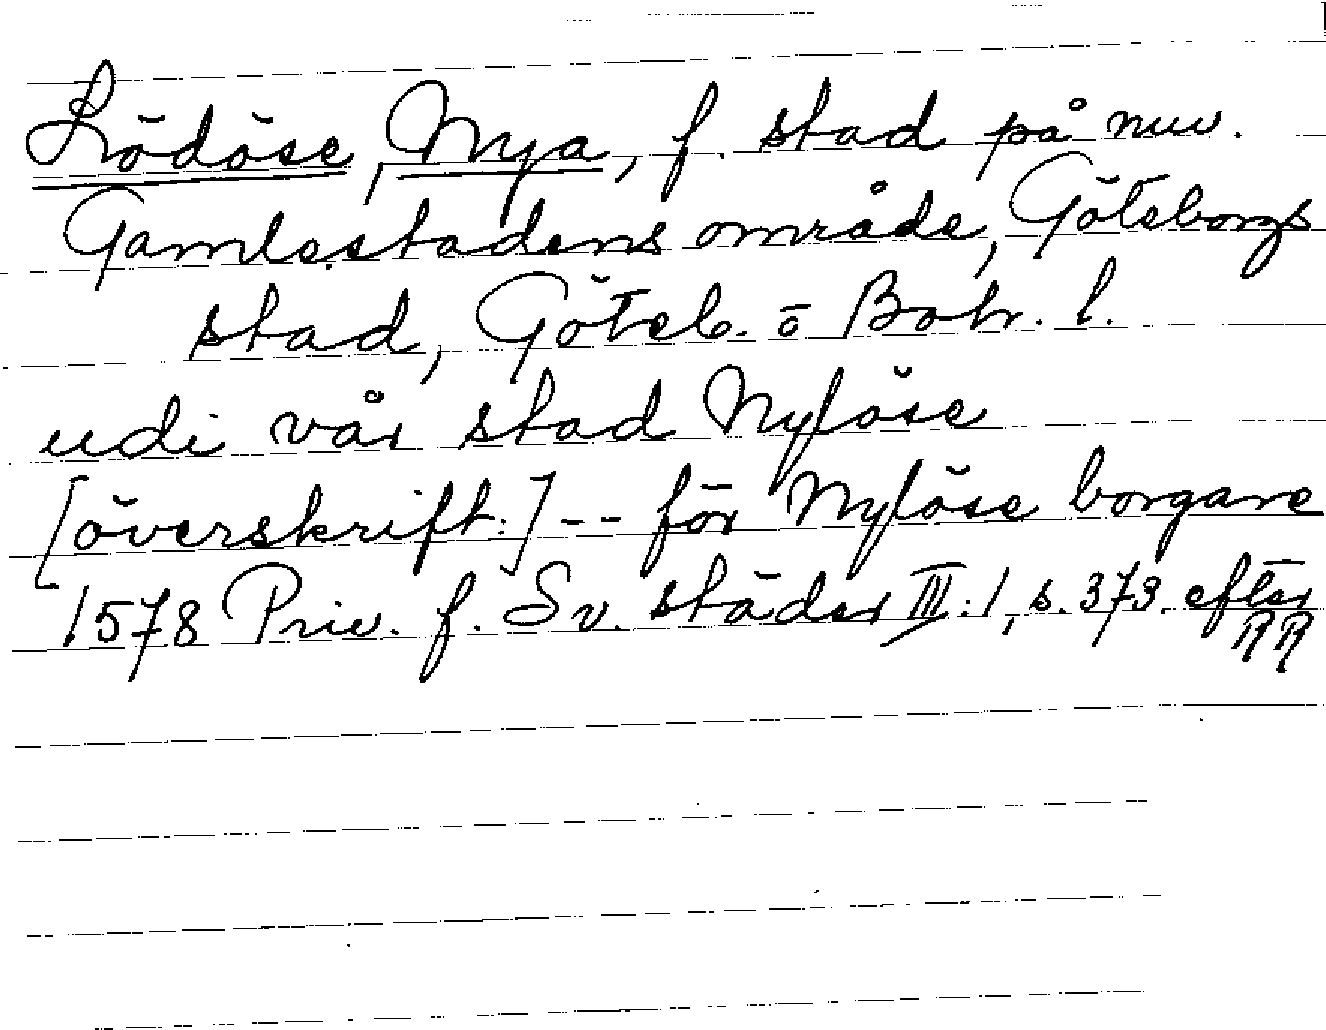 Lödöse, Nya, f. stad på nuv.
Gamlestadens område, Göteborgs
stad, Göteb. o Boh. l.
udi vår stad Nylöse
[överskrift:] -- för Nylöse borgare
1578 Priv. f. Sv. städer III:1, s. 373 efter
RR